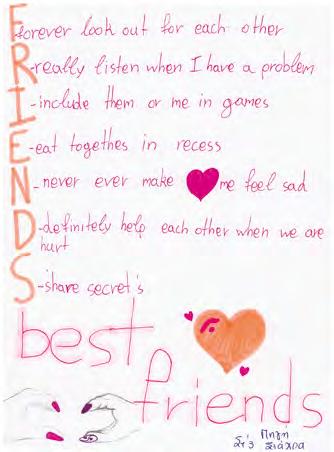 Forever look out for each other
R-really listen when I have a problem
I-include them or me in games
E-eat togethes in recess
N-never ever make me feel sad
D-definitely help each other when we are
hurt
S-share secret's
best
friends
Πηγή
Στ'3